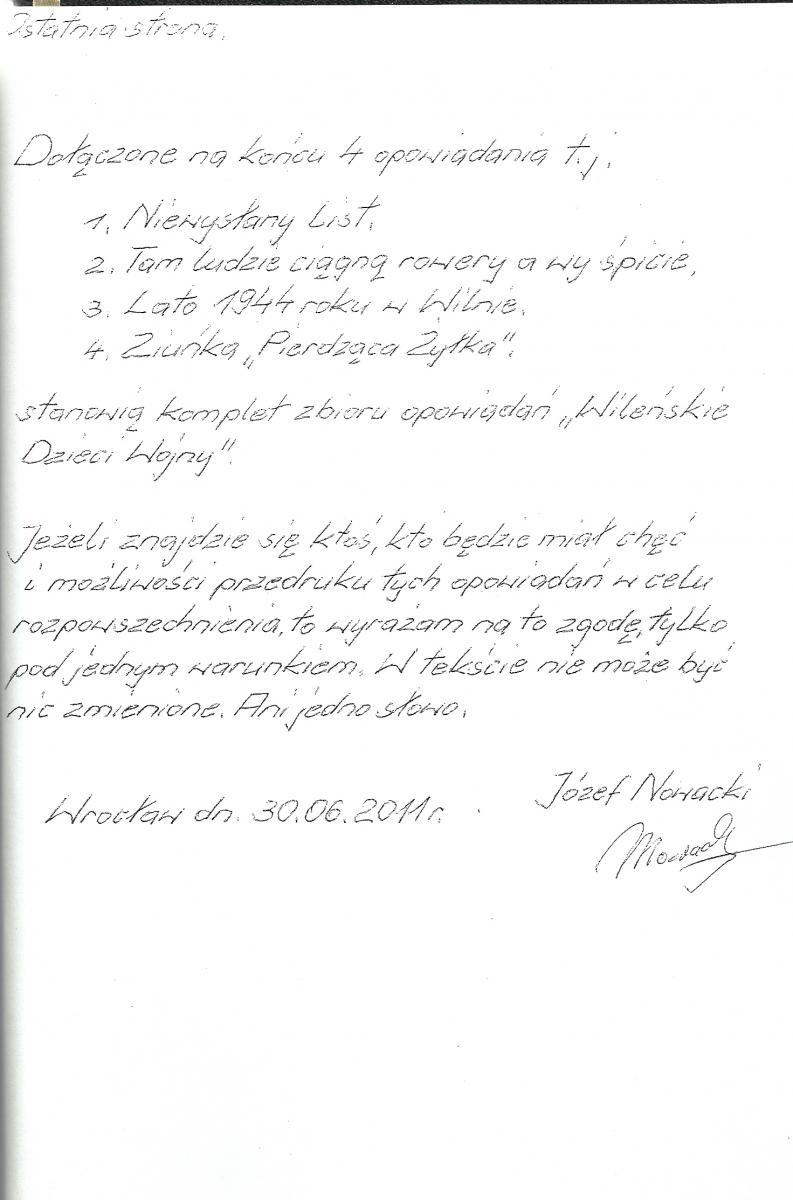 Ostatnia strona.
Dołączone na końcu 4 opowiadania t.j.
1. Niewysłany List.
2. Tam ludzie ciągną rowery a wy śpicie.
3. Lato 1944 roku w Wilnie.
4. Ziuńka „Pierdząca Żyłka".
stanowią komplet zbioru opowiadań „Wileńskie
Dzieci Wojny".
Jeżeli znajdzie się ktoś, kto będzie miał chęć
i możliwości przedruku tych opowiadań w celu
rozpowszechnienia, to wyrażam na to zgodę, tylko
pod jednym warunkiem. W tekście nie może być
nic zmienione. Ani jedno słowo.
Józef Nowacki
Wrocław dn. 30.06.2011r.
Nowacki